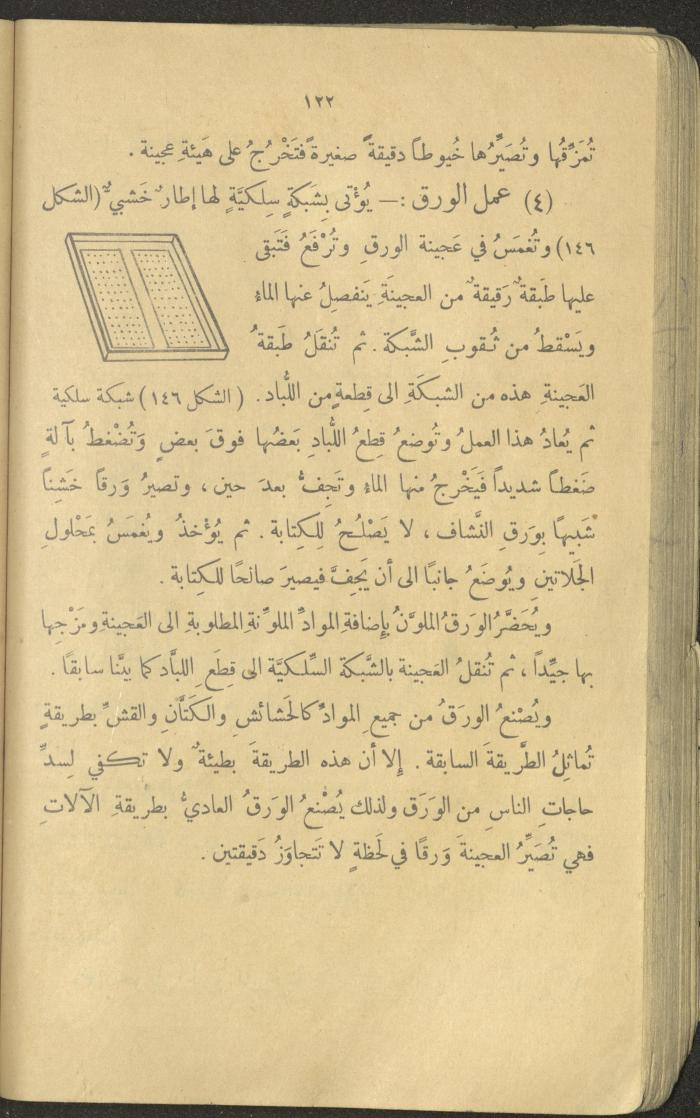 ١٢٢
تُمَزِّقُها وتُصَيِّرُها خُيوطاً دقيقةً صغيرةً فتَخْرُجُ على هَيئةِ عجينة .
(٤) عمل الورق :— يُؤْتى بِشَبكةٍ سِلكيَّةٍ لها إطارٌ خَشبيٌّ (الشكل
١٤٦) وتُغمَسُ في عَجينة الورقِ وتُرْفَعُ فَتَبقى
عليها طَبقةٌ رَقيقةٌ من العجينَةِ يَنفصِلُ عنها الماءُ
ويَسْقطُ من ثُقوبِ الشَّبكة . ثم تُنقَلُ طَبقةُ
العَجينةِ هذه من الشبكَةِ الى قِطعةٍ من اللُّباد . (الشكل ١٤٦) شبكة سلكية
ثم يُعادُ هذا العملُ وتُوضعُ قِطعُ اللُّبادِ بَعضُها فوقَ بعضٍ وَتُضْغطُ بآلةٍ
ضَغطاً شديداً فَيَخْرجُ منها الماءُ وتَجِفُّ بعدَ حين ، وتصيرُ وَرقاً خَشِناً
شَبيهًا بِورَقِ النَّشاف ، لا يَصْلُحُ لِلكِتابة . ثم يُؤْخذُ ويُغمَسُ بمَحْلولِ
الجَلاتينِ ويُوضَعُ جانبًا الى أن يَجِفَّ فيصيرَ صالحًا للكتابة .
ويُحَضَّرُ الوَرقُ الملوَّنُ بإِضافةِ الموادِّ الملوِّنةِ المطلوبةِ الى العَجينةِ ومَزْجِها
بها جيِّداً ، ثم تُنقلُ العَجينة بالشَّبكة السِّلكيَّة الى قِطَعِ اللبَّاد كما بيَّنا سابقًا .
ويُصْنعُ الورَقُ من جميعِ الموادِّ كالحَشائشِ والكَتَّانِ والقشِّ بطريقةٍ
تُماثِلُ الطَّريقةَ السابقة . إِلا أن هذه الطريقةَ بطيئةٌ ولا تكفي لِسدِّ
حاجاتِ الناسِ من الوَرَق ولذلك يُصْنعُ الوَرقُ العاديُّ بطريقةِ الآلاتِ
فهي تُصَيِّرُ العجينةَ وَرقًا في لَحظةٍ لا تَتجاوَزُ دَقيقتين .